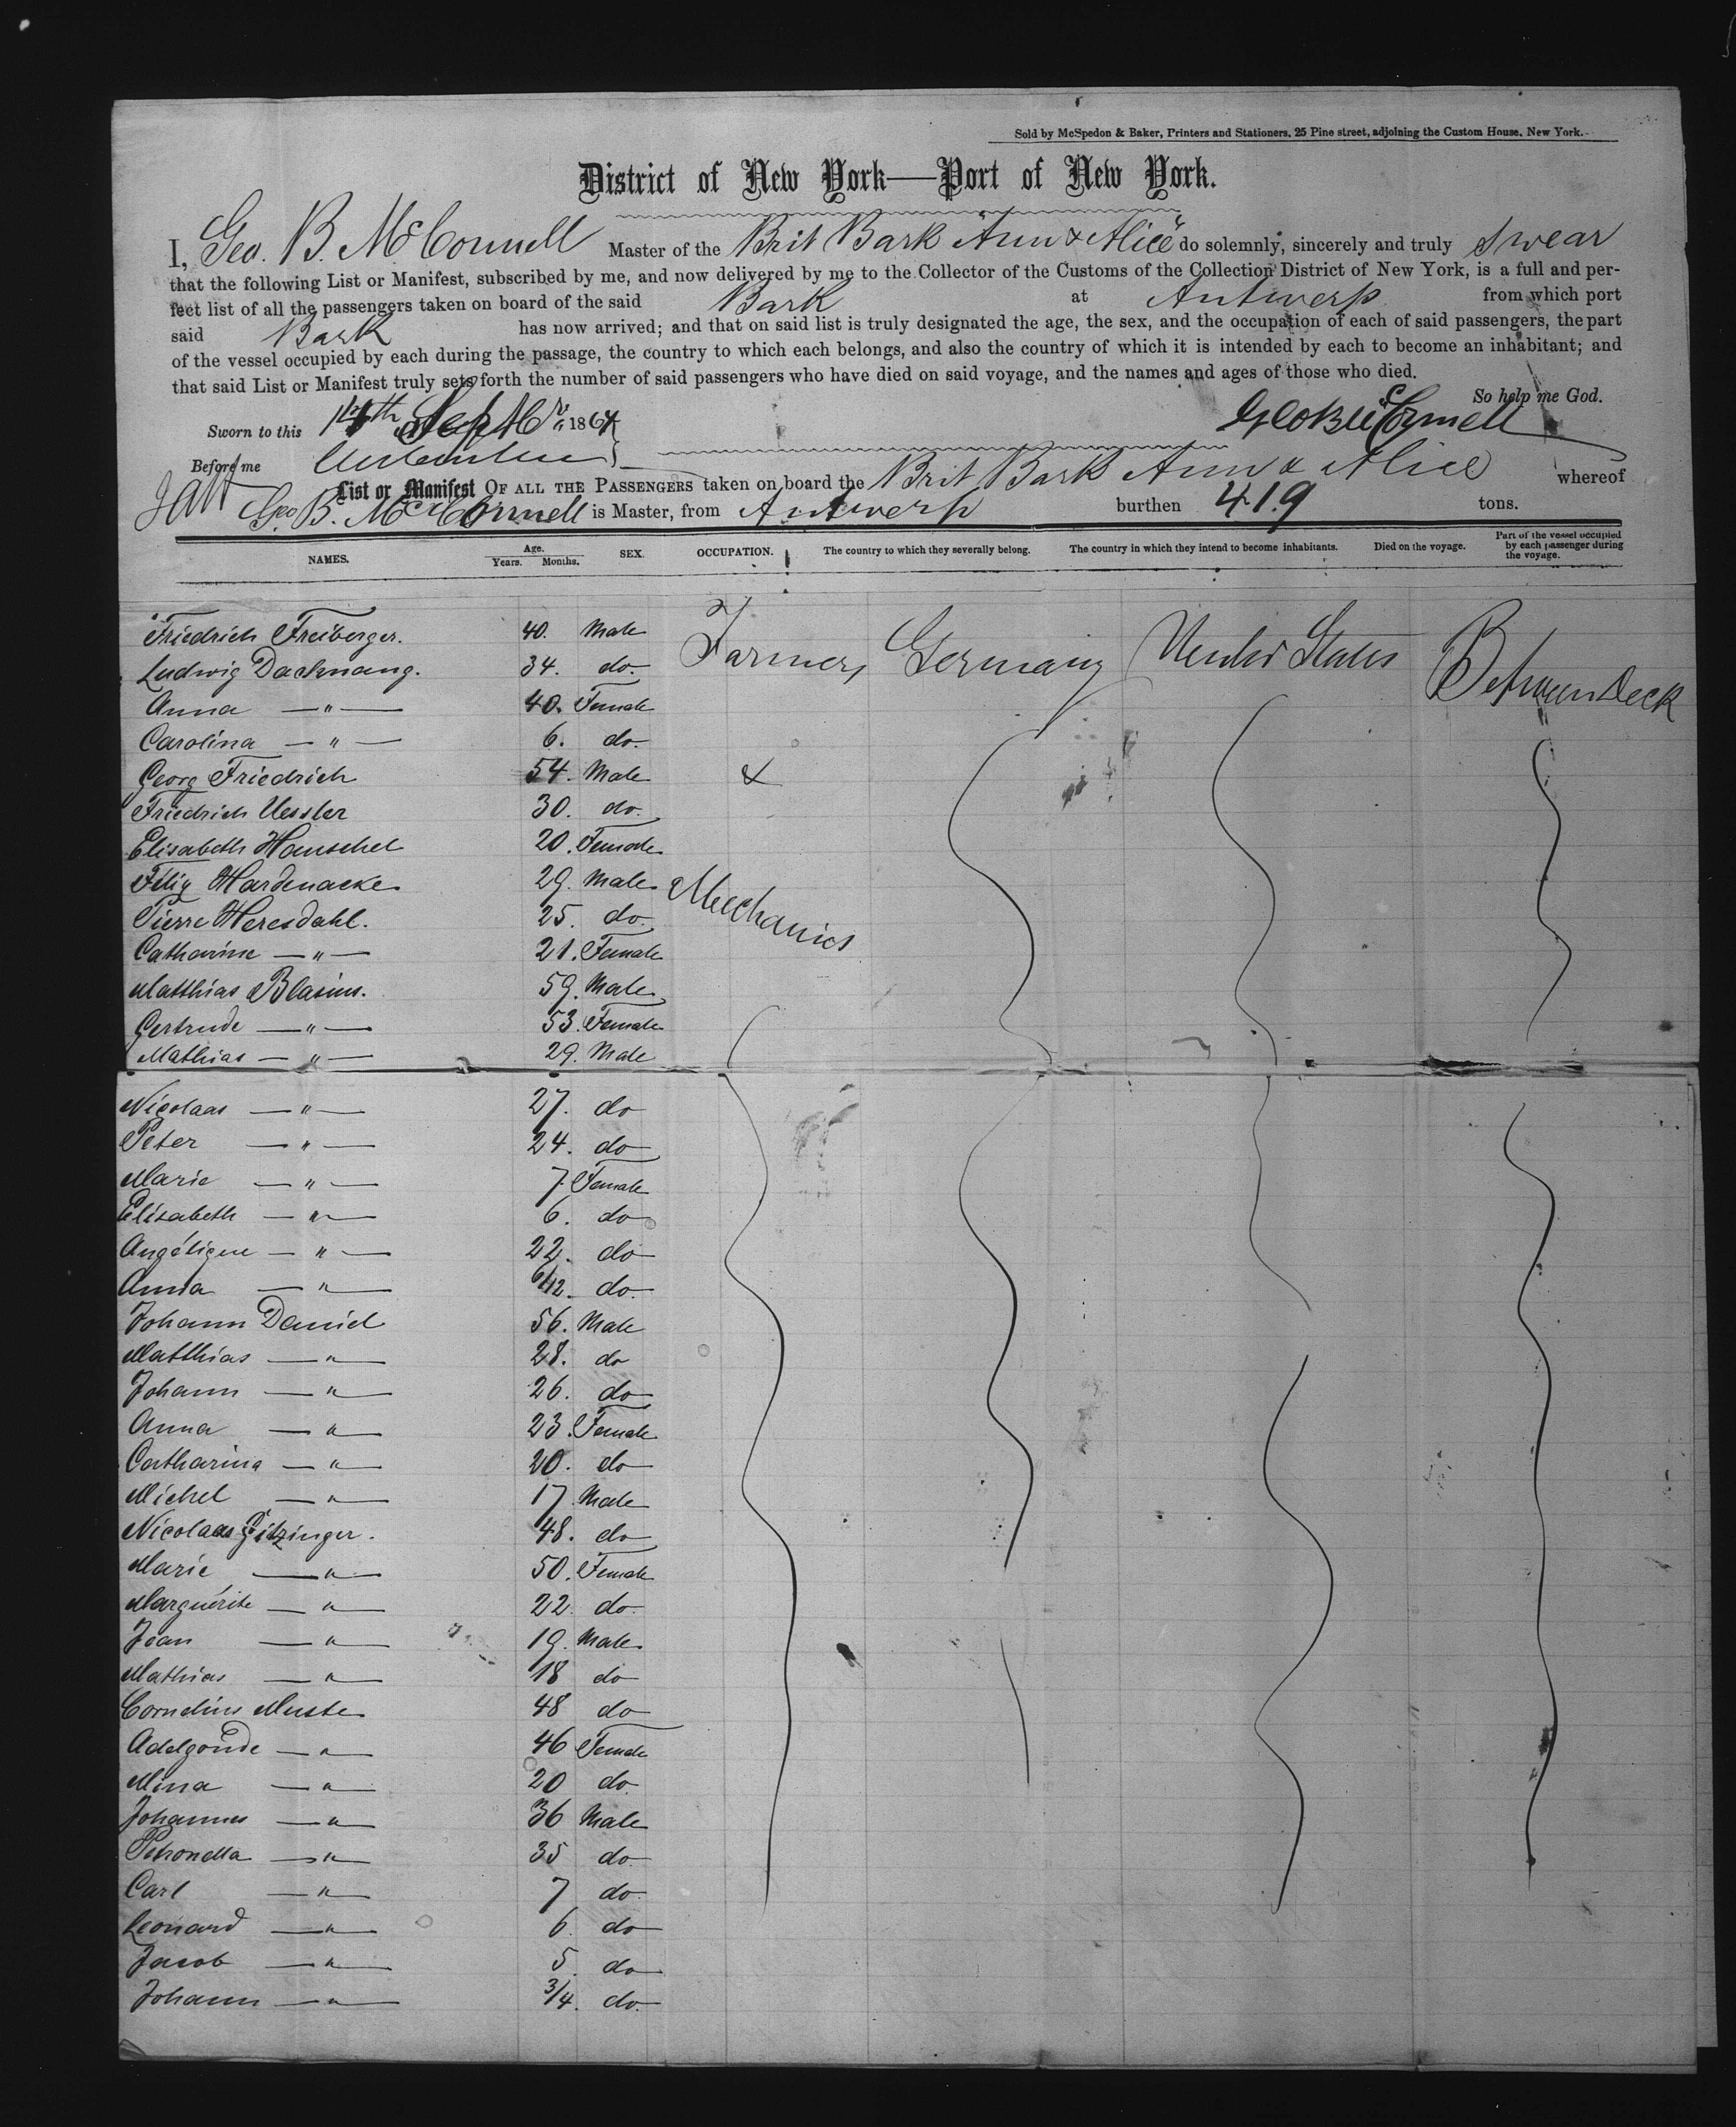 Sold by McSpedon & Baker, Printers and Stationers, 25 Pine street, adjoining the Custom House, New York.
District of New York—Port of New York.
I, Geo. B. McConnell Master of the Brit Bark "Ann & Alice" do solemnly, sincerely and truly Swear
that the following List or Manifest, subscribed by me, and now delivered by me to the Collector of the Customs of the Collection District of New York, is a full and per-
fect list of all the passengers taken on board of the said Bark at Antwerp from which port
said Bark has now arrived; and that on said list is truly designated the age, the sex, and the occupation of each of said passengers, the part
of the vessel occupied by each during the passage, the country to which each belongs, and also the country of which it is intended by each to become an inhabitant; and
that said List or Manifest truly sets forth the number of said passengers who have died on said voyage, and the names and ages of those who died.
So help me God.
Sworn to this 14th Septbr 1864
Geo B McConnell
Before me
List or Manifest OF ALL THE PASSENGERS taken on board the Brit Bark Ann & Alice whereof
Geo B. McConnell is Master, from Antwerp burthen 419 tons.
NAMES. Age. Years. Months. SEX. OCCUPATION. The country to which they severally belong. The country in which they intend to become inhabitants. Died on the voyage. Part of the vessel occupied by each passenger during the voyage.
Friedrich Freiberger. 40. Male Farmers Germany United States Between Deck
Ludwig Dachnang. 34. do.
Anna — " — 40. Female
Carolina — " — 6. do.
Georg Friedrich 54. Male
Friedrich Uessler 30. do.
Elisabeth Hauschel 20. Female
Filip Hardenacke 29. Male Mechanics
Pierre Heresdahl. 25. do.
Catharine — " — 21. Female
Matthias Blasius. 59. Male
Gertrude — " — 53. Female
Mathias — " — 29. Male
Nicolaas — " — 27. do
Peter — " — 24. do
Marie — " — 7. Female
Elisabeth — " — 6. do
Angélique — " — 22. do
Anna — " — 6/12. do.
Johann Daniel 56. Male
Matthias — " — 28. do
Johann — " — 26. do
Anna — " — 23. Female
Catharina — " — 20. do
Michel — " — 17 Male
Nicolaas Gitzinger. 48. do
Marie — " — 50. Female
Marguérite — " — 22 do.
Jean — " — 19. Male
Mathias — " — 18 do
Cornelius Muste 48 do
Adelgonde — " — 46 Female
Mina — " — 20 do
Johannes — " — 36 Male
Petronella — " — 35 do.
Carl — " — 7 do.
Leonard — " — 6 do
Jacob — " — 5 do
Johann — " — 3/4. do.